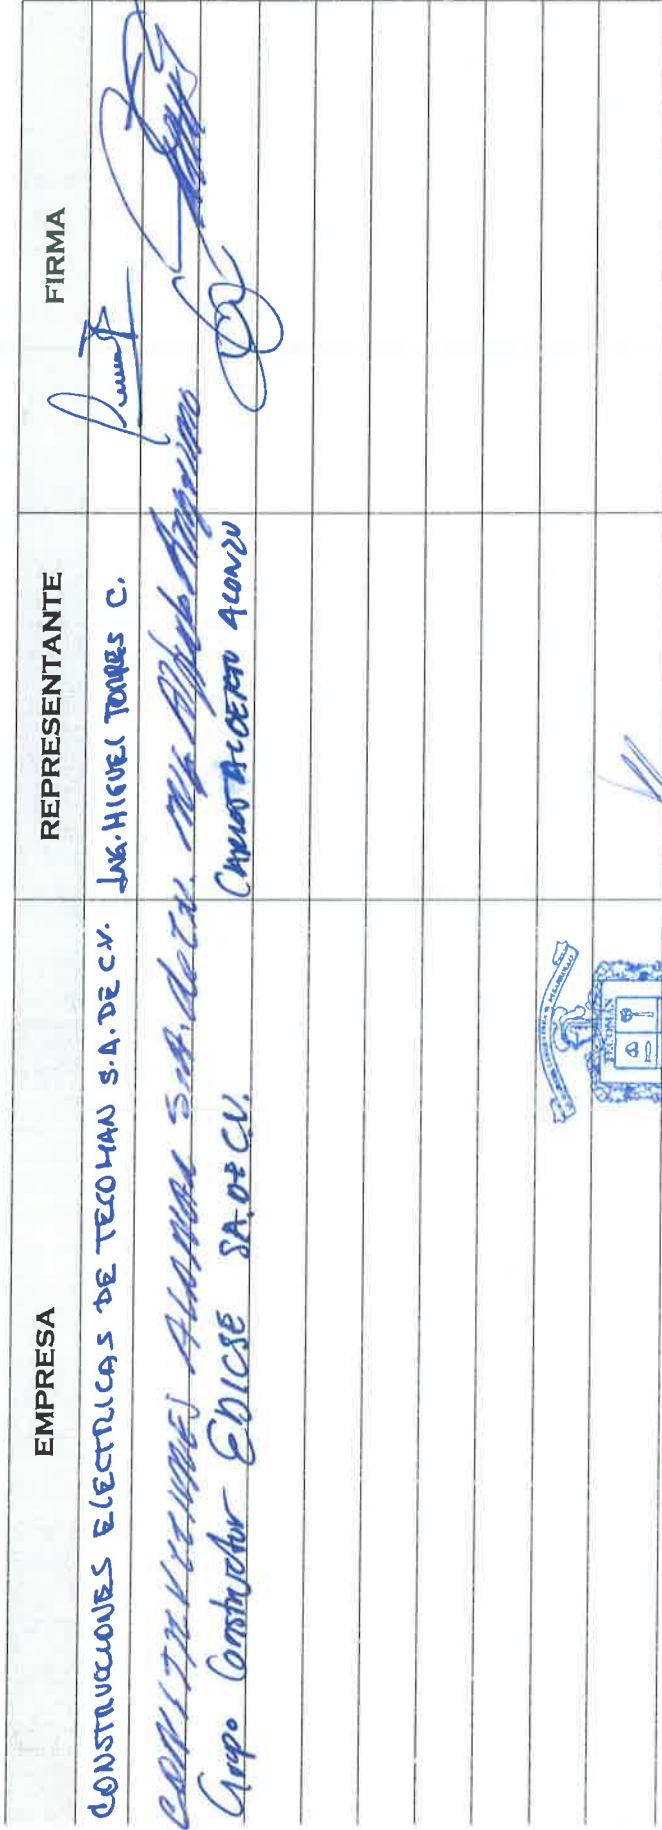 EMPRESA REPRESENTANTE FIRMA
CONSTRUCCIONES ELECTRICAS DE TECOMAN S.A. DE C.V. ING. MIGUEL TORRES C.
CONSTRUCCIONES S.A. de C.V.
Grupo Constructor EDICSE SA. DE C.V. CARLOS ALBERTO ALONZO
TECOMÁN